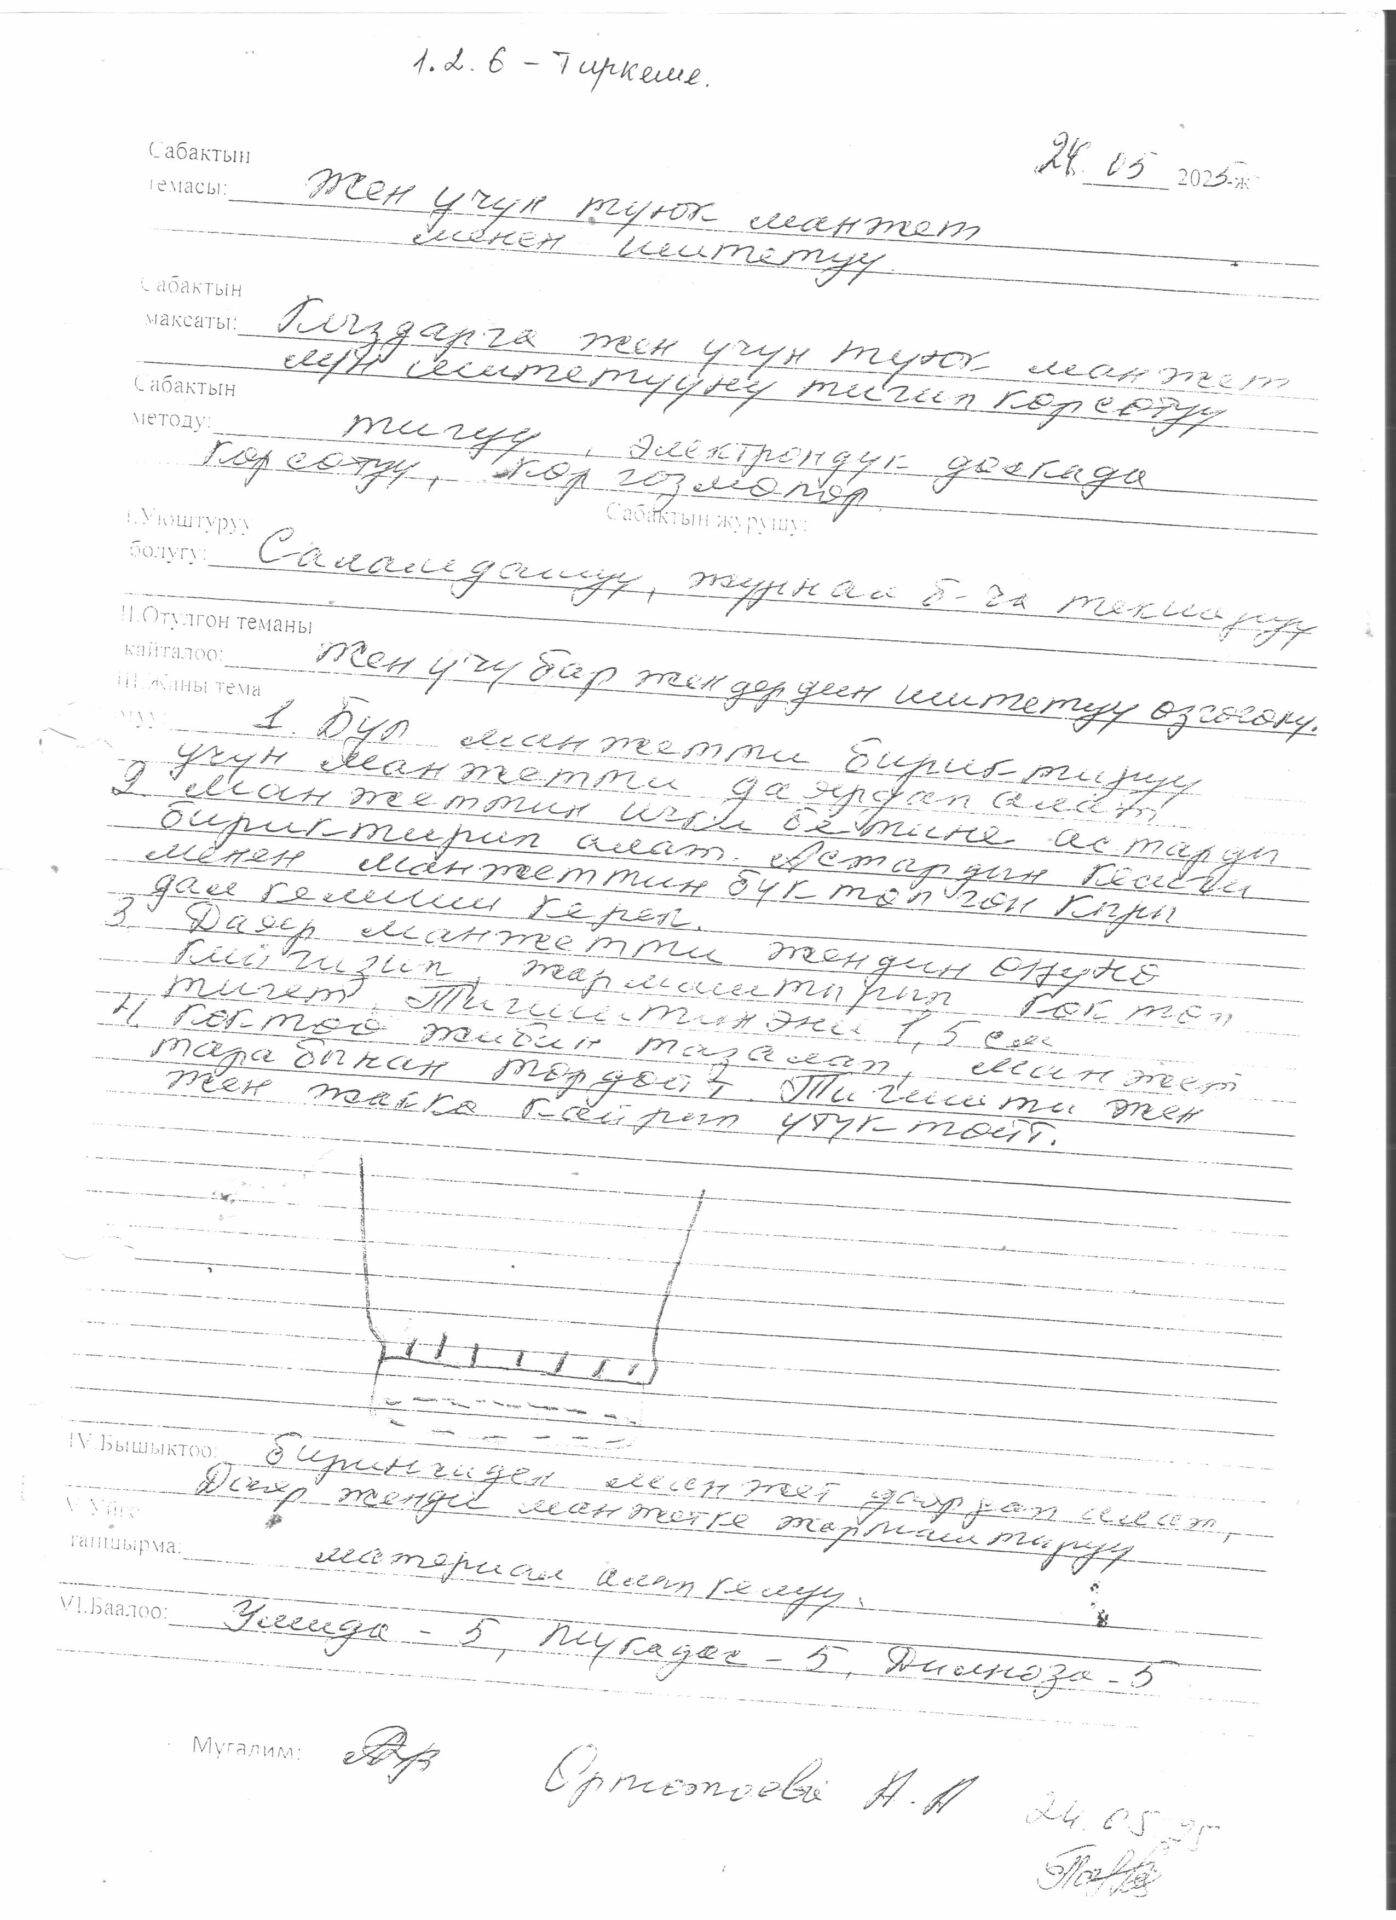 1.2.6 – Тиркеме.
Сабактын
24. 05 2025-ж
темасы: Жен учун туюк манжет
менен иштетуу.
Сабактын
максаты: Кыздарга жен учун туюк манжет
мун иштетууну тигип корсотуу
Сабактын
методу: тигуу, электрондук доскада
корсотуу, коргозмолор.
Сабактын журушу:
I.Уюштуруу
болугу: Саламдашуу, журнал б-ча текшеруу
II.Отулгон теманы
кайталоо: Жен учу бар жендердин иштетуу озгочону.
III.Жаны тема
1. Бул манжетти бириктируу
учун манжетти даярдап алат
2. Манжеттин ички бетине астарды
бириктирип алат. Астардын кесиги
менен манжеттин буктолгон кыры
дал келиши керек.
3. Даяр манжетти жендин онуно
кийгизип, жармаштырып коктоп
тигет. Тигиштин эни 1,5 см
4. Коктоо жибин тазалап, манжет
тарабынан тордойт. Тигишти жен
жен жакка кайрып утуктойт.
IV.Бышыктоо: Биринчиден манжет даярдап алат,
Даяр женди манжетке жармаштыруу
V.Уйго
тапшырма: материал алып келуу.
VI.Баалоо: Умида - 5, Мукадас - 5, Дилноза - 5
Мугалим:
24.05.25